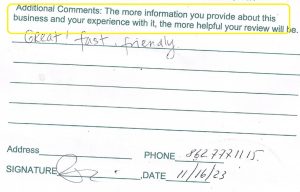 Additional Comments: The more information you provide about this
business and your experience with it, the more helpful your review will be.
Great! fast, friendly
Address
PHONE 8627771115
SIGNATURE ,DATE 11/16/23